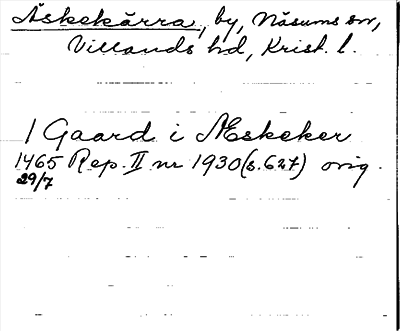 Äskekärra, by, Näsums sn,
Villands hd, Krist. l.
1 Gaard i Æskeker
1465 Rep. II nr 1930 (s. 627) orig.
29/7